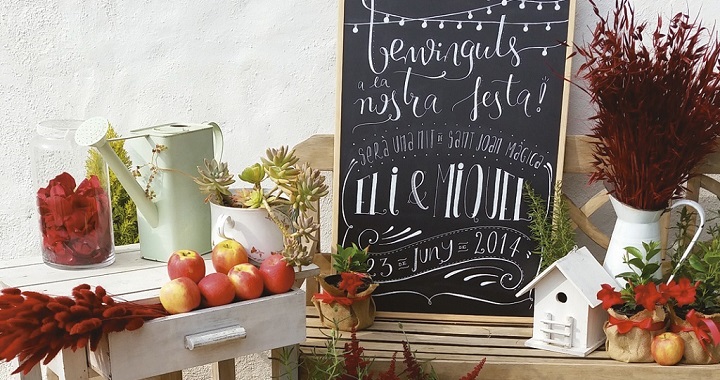 Benvinguts
a la
nostra festa!
SERÀ UNA NIT DE SANT JOAN MÀGICA
ELI & MIQUEL
23 - DE - JUNY - DE - 2014